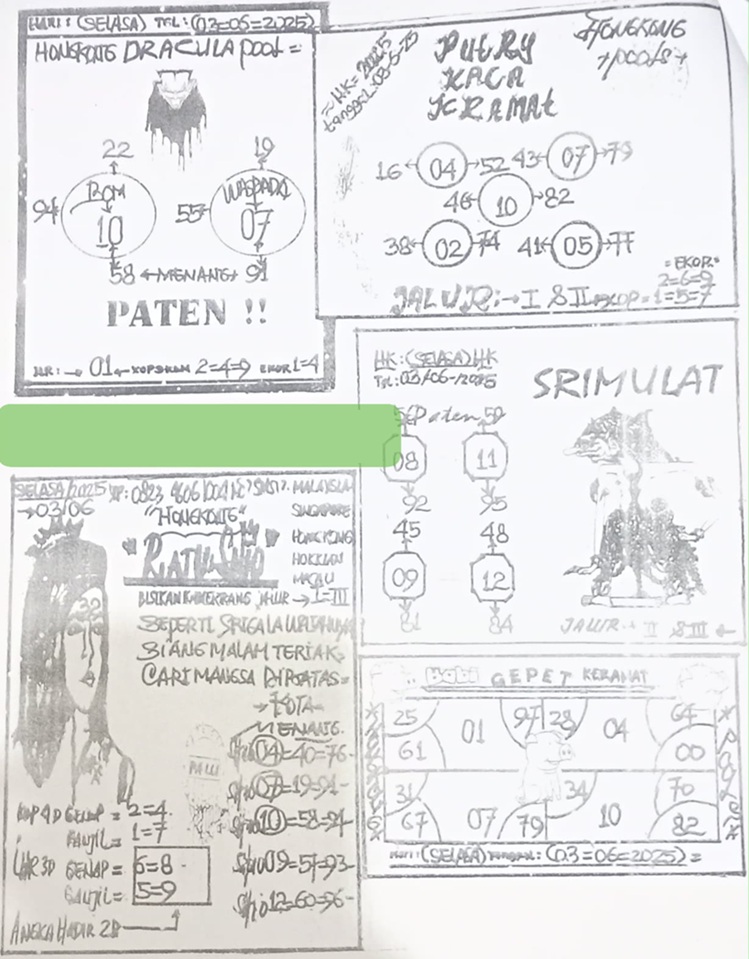 HARI: (SELASA) TGL: (03=06=2025)
HONGKONG DRACULA pool =
22 19
94 BOM 10
55 WASPADA 07
58 MENANG 91
PATEN !!
JLR: → 01 ← KOPSKAN 2=4=9 EKOR 1=4
HK= 2025
tanggal 03-6-25
PUTRY
KACA
KRAMAT
HONGKONG
+pools+
16 04 52 43 07 79
46 10 82
38 02 74 41 05 77
JALUR: → I & II
=EKOR=
2=6=9
KOP = 1=5=7
HK: (SELASA) HK
TGL: 03/06-2025
SRIMULAT
Paten 59
08 11
92 95
45 48
09 12
81 84
JALUR II & III
SELASA/2025
→03/06
"HONGKONG"
MALAYSIA
SINGAPORE
HONGKONG
MACAU
JALUR → I=III
32
SEPERTI SRIGALA
SIANG MALAM TERIAK
CARI MANGSA
→KOTA
MENANG
04=40=76
07=19=91
10=58=94
Shio 09=57=93
Shio 12=60=96
KOP 4D GENAP = 2=4
GANJIL = 1=7
LHR 3D GENAP = 6=8
GANJIL = 5=9
ANGKA HADIR 2D
Babi GEPET KERAMAT
25 01 97 28 04 64
61 00
31 34 70
67 07 79 10 82
HARI: (SELASA) TANGGAL: (03=06=2025) =